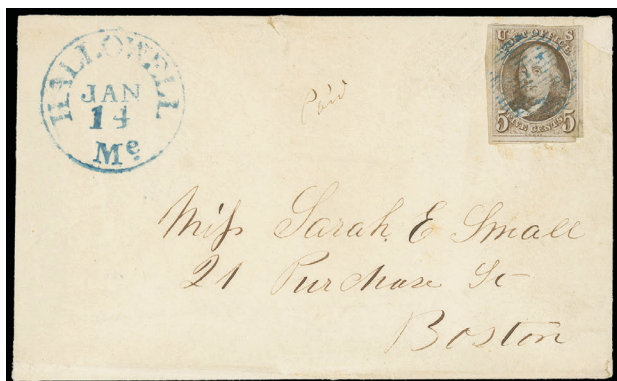 HALLOWELL
JAN
14
Me
Paid
U S
POST OFFICE
5 FIVE CENTS 5
Miss Sarah E Small
21 Purchase St
Boston